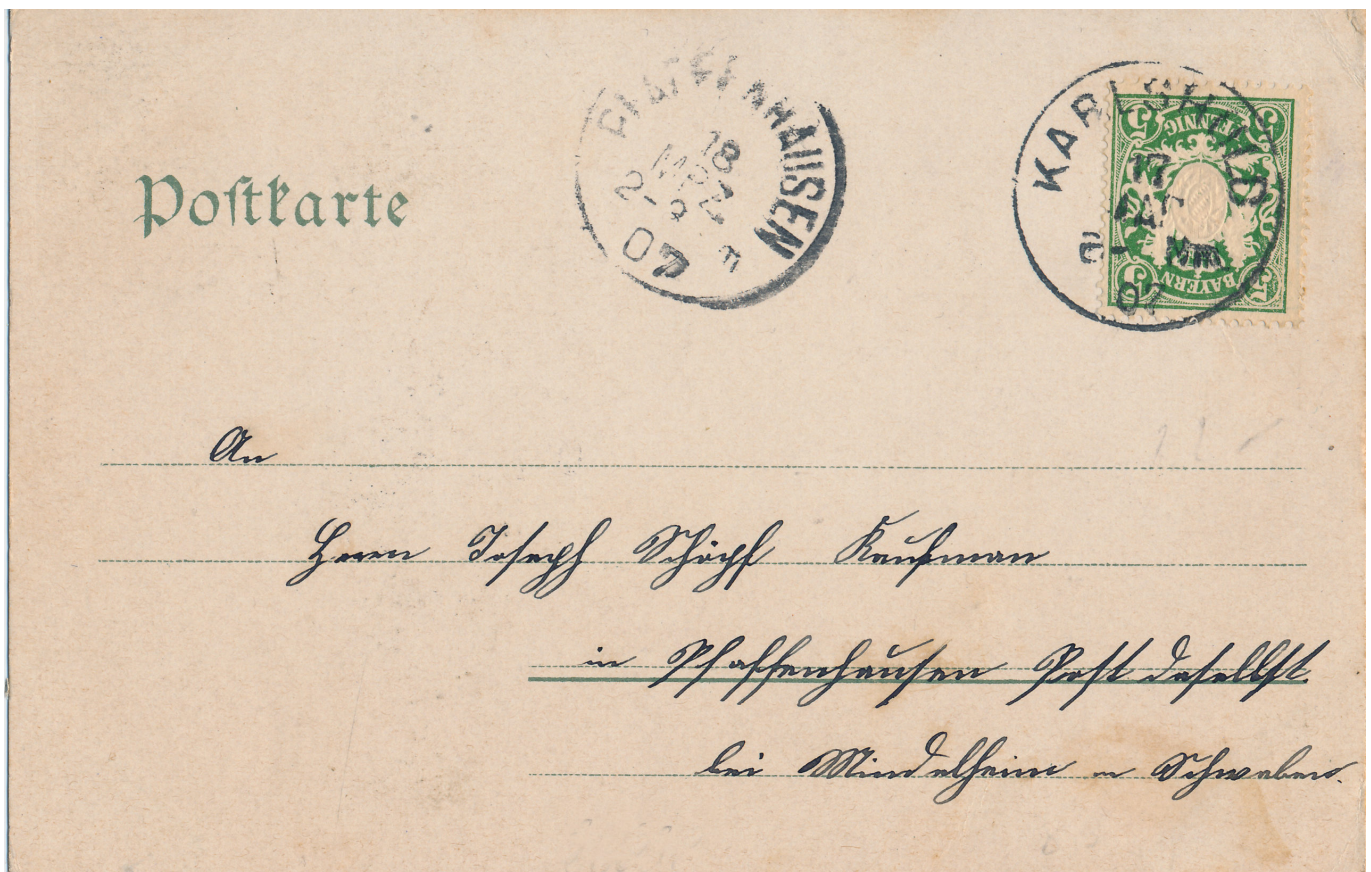 Postkarte
PFAFFENHAUSEN
18
MRZ
2-3
07
KARLSHULD
17
MRZ
Nm
07
5 PFENNIG 5
5 BAYERN 5
An
Herrn Joseph Schöpf Kaufman
in Pfaffenhausen Post daselbst.
bei Mindelheim in Schwaben.